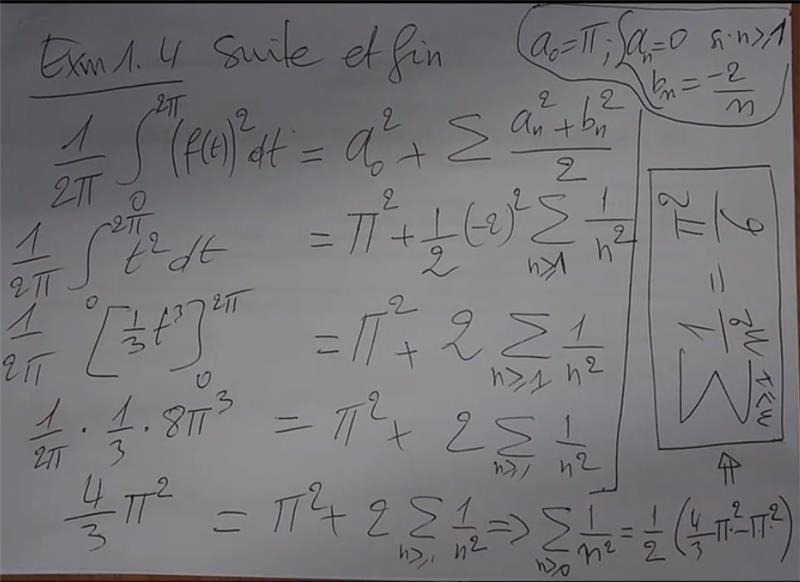 Exm 1.4 suite et fin
a₀ = π ; { aₙ = 0 si n ≥ 1
bₙ = -2/n
1/2π ∫₀^2π (f(t))² dt = a₀² + Σ (aₙ² + bₙ²)/2
1/2π ∫₀^2π t² dt = π² + 1/2 (-2)² Σ_{n≥1} 1/n²
1/2π [1/3 t³]₀^2π = π² + 2 Σ_{n≥1} 1/n²
1/2π · 1/3 · 8π³ = π² + 2 Σ_{n≥1} 1/n²
4/3 π² = π² + 2 Σ_{n≥1} 1/n² ⇒ Σ_{n≥0} 1/n² = 1/2 (4/3 π² - π²)
⇒ Σ_{n≥1} 1/n² = π²/6